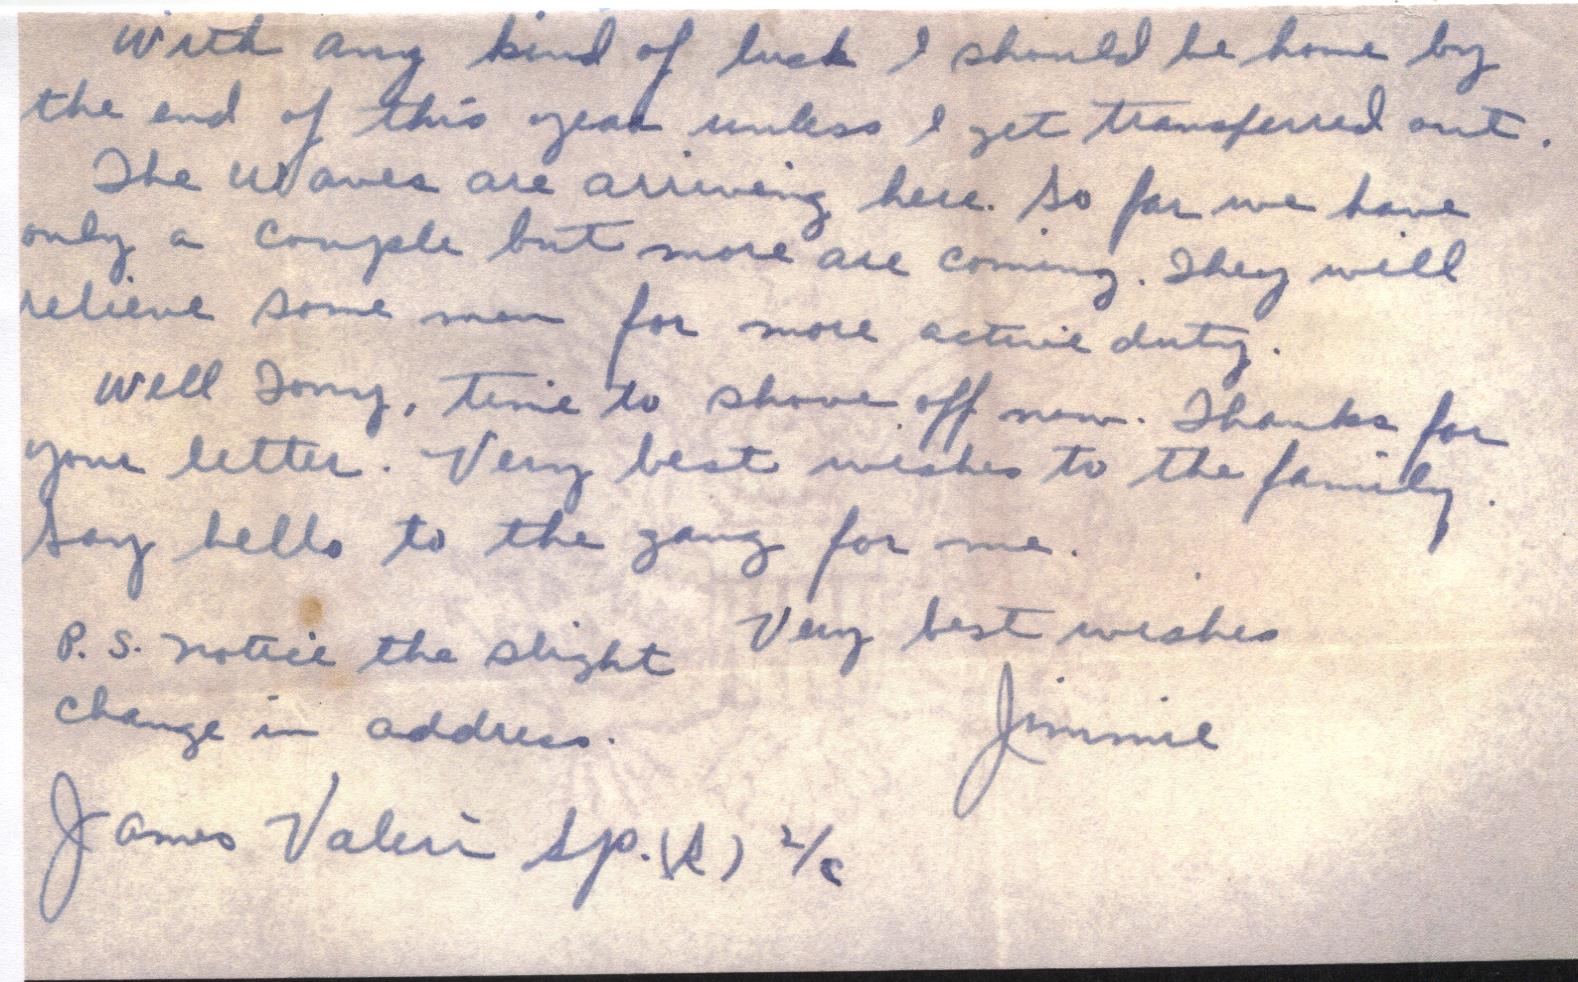 With any kind of luck I should be home by
the end of this year unless I get transferred out.
The Waves are arriving here. So far we have
only a couple but more are coming. They will
relieve some men for more active duty.
Well Tony, time to shove off now. Thanks for
your letter. Very best wishes to the family.
Say hello to the gang for me.
Very best wishes
Jimmie
P.S. Notice the slight
change in address.
James Valeri Sp. ( ) 2/c